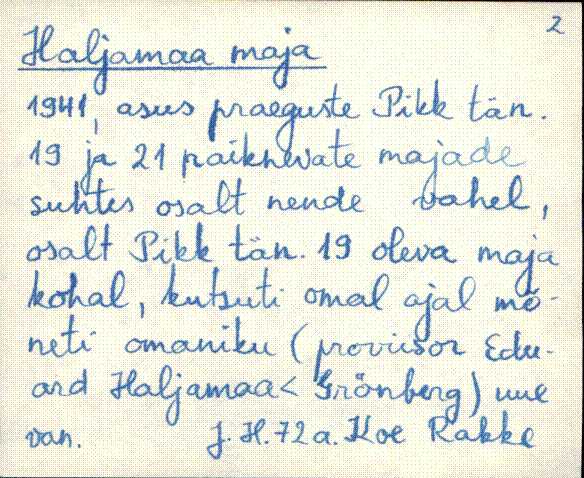 2
Haljamaa maja
1941, asus praeguste Pikk tän.
19 ja 21 paiknevate majade
suhtes osalt nende vahel,
osalt Pikk tän. 19 oleva maja
kohal, kutsuti omal ajal mõ-
neti omaniku (proviisor Edu-
ard Haljamaa < Grönberg) uue
van. J. H. 72 a. Koe Rakke